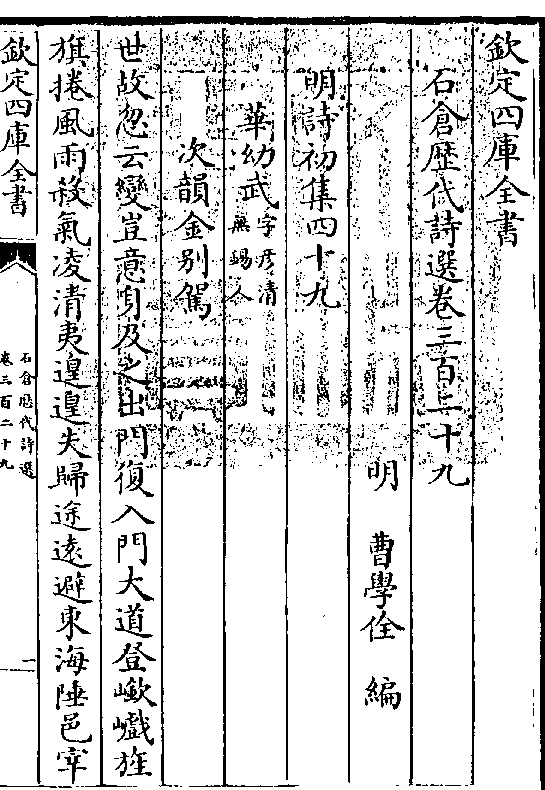 欽定四庫全書
石倉歴代詩選卷三百二十九
明 曹學佺 編
明詩初集四十九
華幼武字彦清無錫人
次韻金别駕
世故忽云變豈意身及之出門復入門大道登嶮巇旌
旗捲風雨殺氣凌清夷遑遑失歸途逺避東海陲邑宰
欽定四庫全書
石倉歴代詩選
卷三百二十九
一